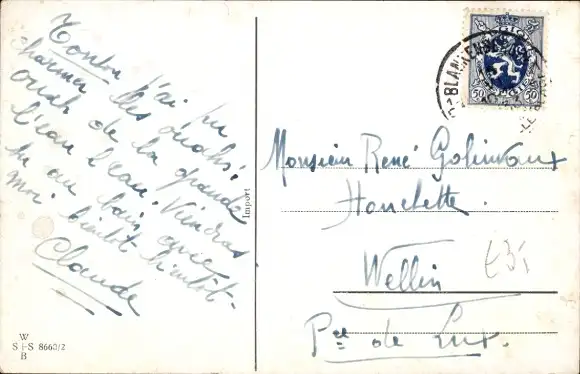 Tonton j'ai pu
charmer les
ouah de la grande
l'eau l'eau. Viendras
tu au bain avec
moi bientôt bientôt.
Claude
Import
W
S+S 8660/2
B
BLANKENBERGE
BELGIQUE
50 50
Monsieur René Golinvaux
Honchette
Wellin
Pce de Lux.